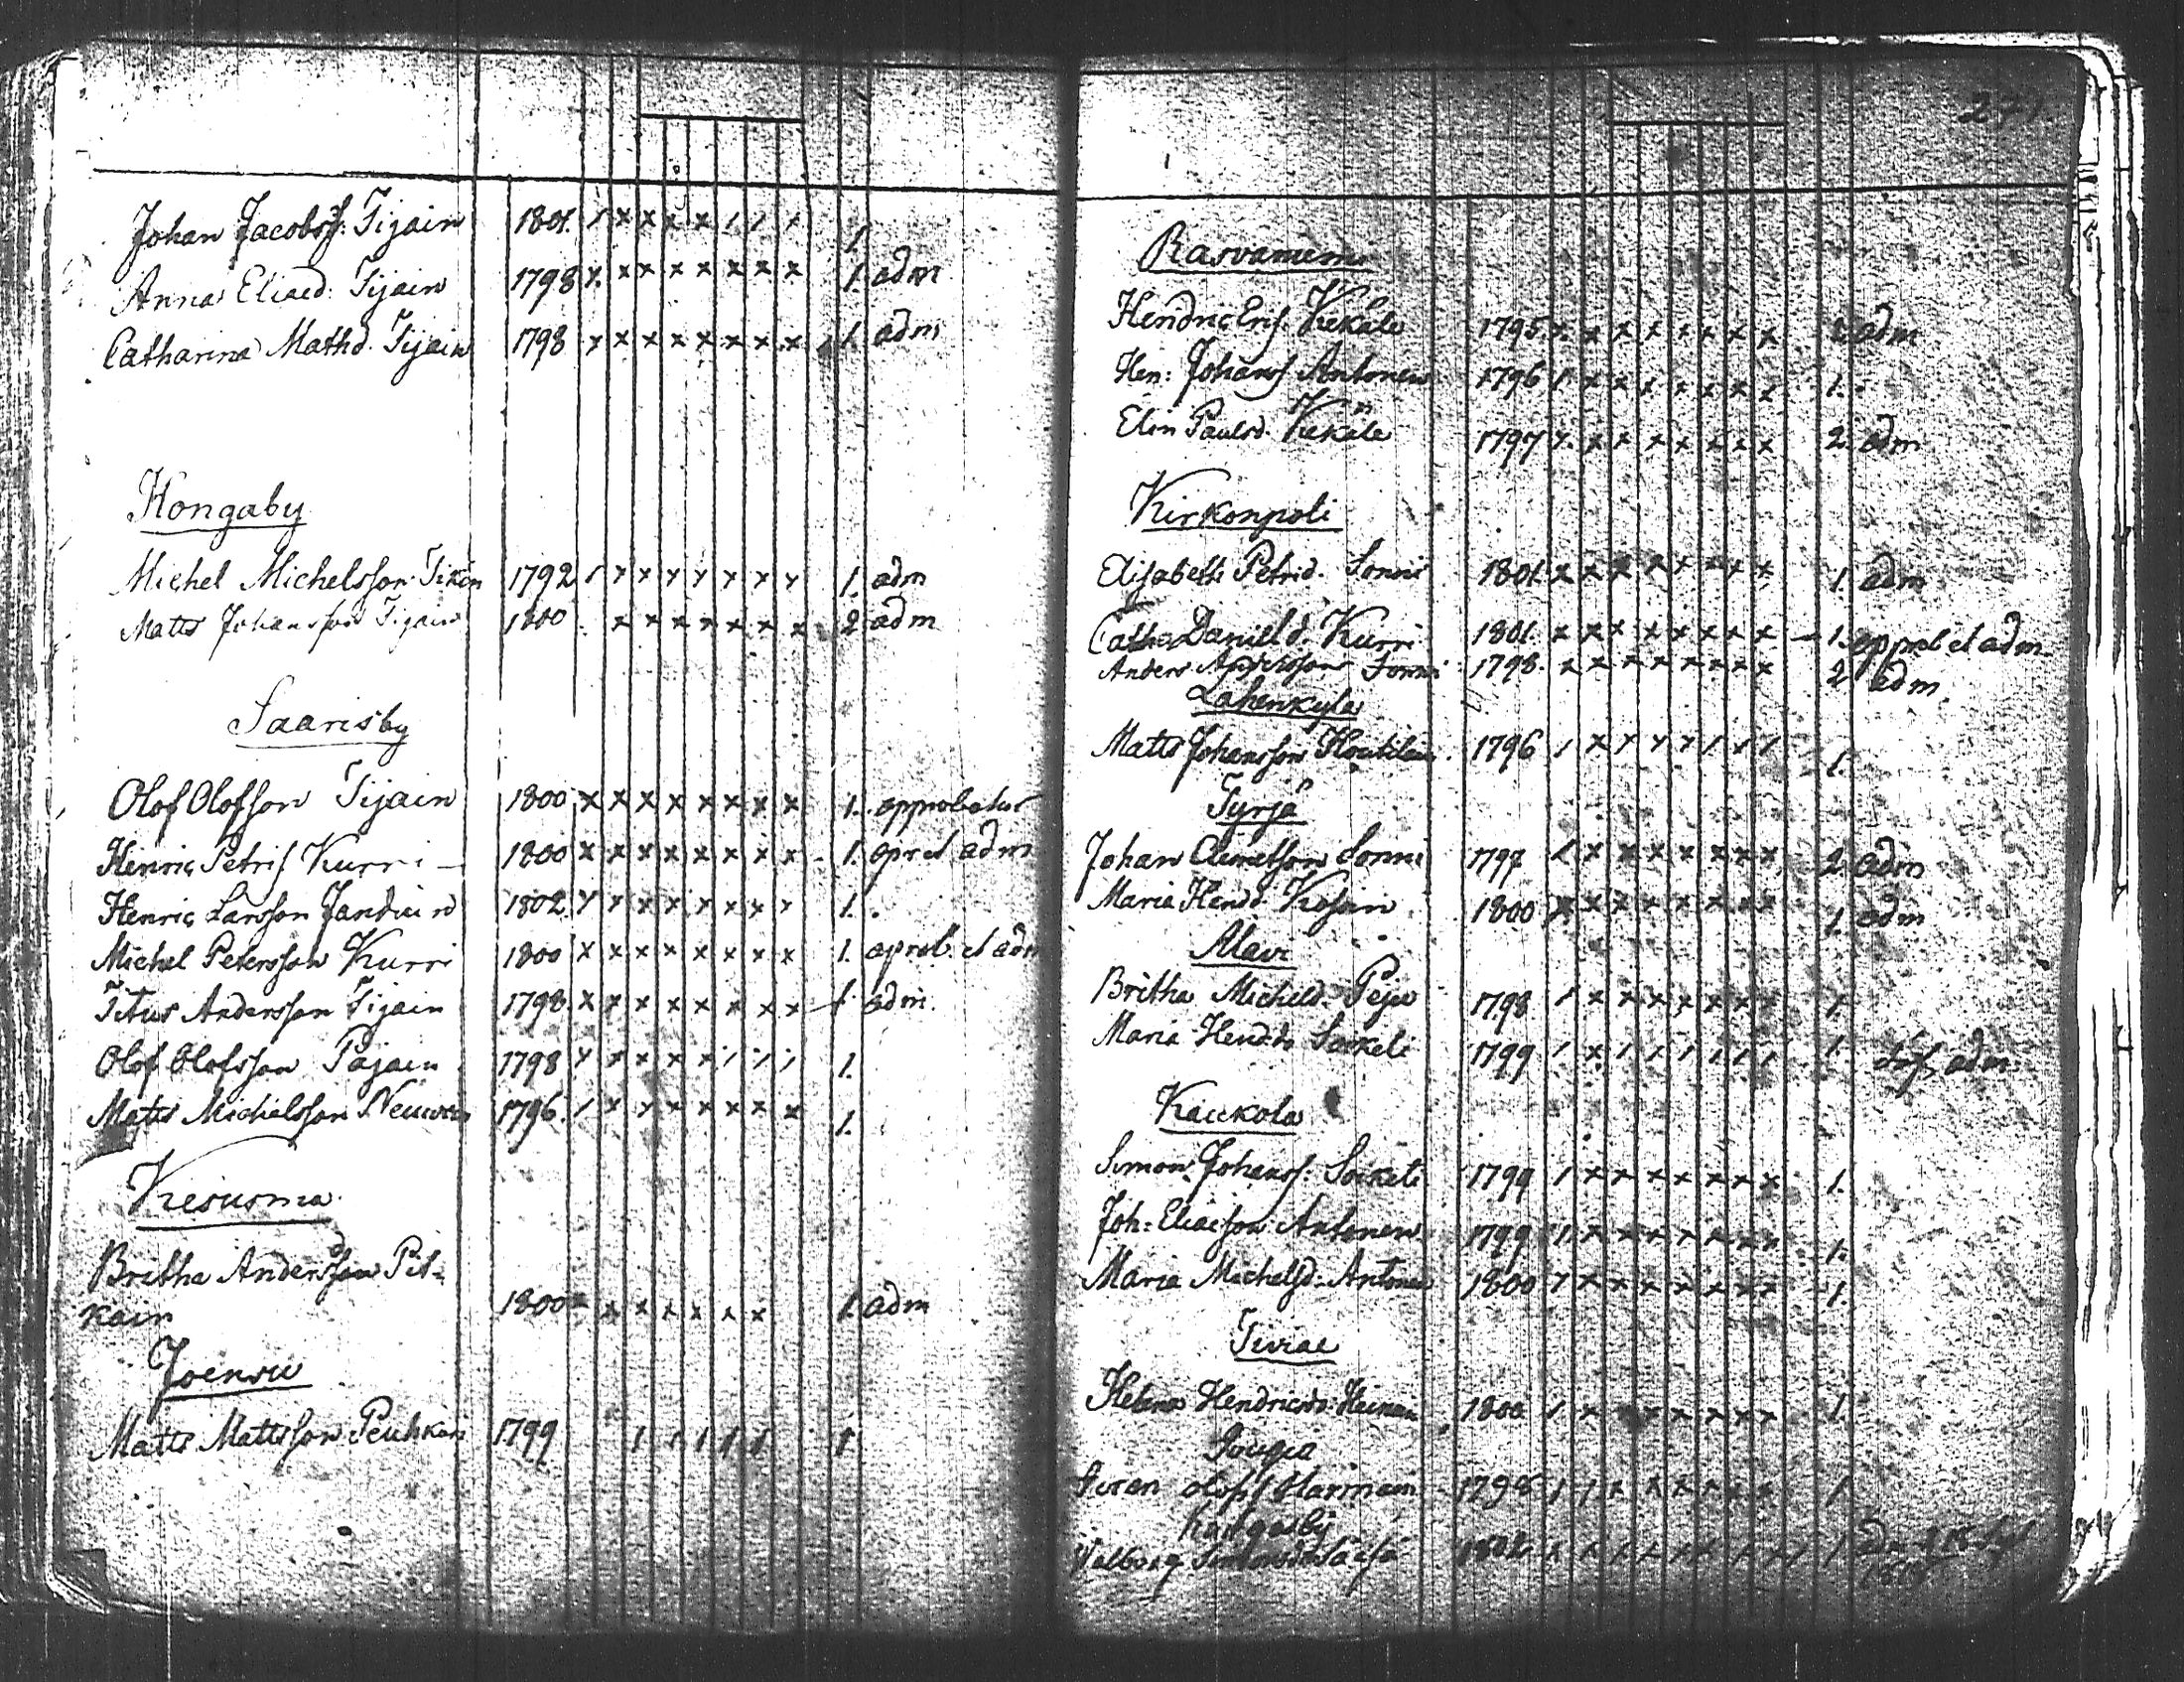 Johan Jacobsf. Tijain 1801. / x x x x / / / 1.
Anna Eliaed. Tijain 1798 x. x x x x x x x 1. adm
Catharina Mathd. Tijain 1798 x x x x x x x x 1. adm
Hongaby
Michel Michelsson 1792 / x x x x x x x 1. adm
Matts Johansson Tijain 1800 x x x x x x x 2 adm
Saarisby
Olof Olofsson Tijain 1800 x x x x x x x x 1. approbatur
Henric Petrif Kurri 1800 x x x x x x x x 1. adm
Henric Larsson 1802. x x x x x x x x 1.
Michel Petersson Kurri 1800 x x x x x x x x 1. aprob. et adm
Titus Andersson Tijain 1798 x x x x x x x x 1 adm.
Olof Olofsson Pajain 1798 x x x x x / / / 1.
Matts Michelsson 1796. / x x x x x x x 1.
Kesusma
Britha Anders Pit-
kain 1800 x x x x x x 1. adm
Joensu
Matts Mattsson 1799 / / / / / 1
271.
Rasvaniemi
Hendric Erics. Kekäle 1795. x. x x x x x x x adm
Hen: Johansf Antonen 1796 / x x x x x x x 1.
Elin Paulsd. Kekäle 1797 x. x x x x x x x 2. adm
Kirkonpoli
Elisabeth Petrid. Sonni 1801. x x x x x x x x 1. adm
Cath. Danield. Kurri 1801. x x x x x x x x 1. approb et adm
Anders Andersson Sonni 1798. x x x x x x x x 2 adm.
Lahenkyla
Matts Johansson 1796 / x x x x / / / 1.
Tyrjä
Johan Clemetsson Sonni 1797 / x x x x x x x 2 adm
Maria Hend.d. 1800 x x x x x x x x 1. adm
Alavi
Britha Michelsd. 1798 / x x x x x x x 1.
Maria Hend.d. Soikeli 1799 / x / / / / / / 1. adm.
Kaukola
Simon Johansf. Soikeli 1799 / x x x x x x x 1.
Joh: Eliaeson Antonen 1799 1. x x x x x x x 1.
Maria Michelsd. Antonen 1800 x x x x x x x x 1.
Tiviae
Helena Hendricsd. 1800 / x x x x x x x 1.
Olofsf 1798 / / x x x x x x 1
Kangasby
Walborg Simonsd. 1802 1